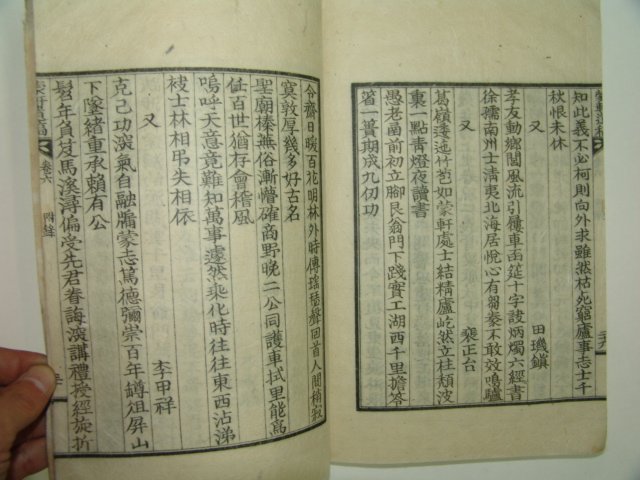 知此義不必柯則向外求雖然枯死窮廬事志士千
秋恨未休
又
田璣鎭
孝友動鄉閭風流引履車函筵十字訣炳燭六經書
徐孺南州士淸夷北海居悅心有芻豢不敢效鳴驢
又
裵正台
葛嶺逶迤竹苞如蒙軒處士結精廬屹然立柱頹波
裏一點靑燈夜讀書
愚老菌前初立腳艮翁門下踐實工湖西千里擔笭
簹一簣期成九仞功
令齋日暖百花明林外時傳瑤琴聲回首人間稍寂
寞敦厚幾多好古名
聖廟榛蕪俗漸瞢確商野晩二公同護車拭里能爲
任百世猶存會稽風
嗚呼天意竟難知萬事遽然乘化時往往東西沾涕
袂士林相吊失相依
又
李甲祥
克己功深氣自融牖蒙志篤德彌崇百年罇俎屏山
下墜緖重承賴有公
髫年負笈馬溪潯偏受先君眷誨深講禮授經旋折
卷六
附錄